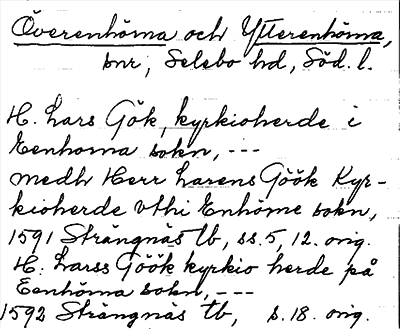 Överenhörna och Ytterenhörna,
snr, Selebo hd, Söd. l.
H. Lars Gök, kyrkioherde i
Eenhorna sokn, ---
medh Herr Larens Göök Kyr-
kioherde vthi Enhöme sokn,
1591 Strängnäs tb, ss. 5, 12. orig.
H. Larss Göök kyrkio herde på
Eenhörna sokn, ---
1592 Strängnäs tb, s. 18. orig.